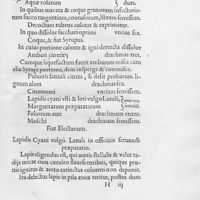 Aquæ rosarum
In quibus macera & coque granorum infectorio-
rum succo turgentium, contusorum, libram semissem.
Decoctum rubens coletur & exprimatur.
In quo dissolue sacchari optimi vncias sex.
Coque, & fiat Syrupus.
In cuius portione calente & igni detracta dissolue
Ambari cineritij drachmas tres.
Cumque liquefactum fuerit ambarum adde reli-
quæ Syrupi portioni, dein insperge & commisce,
Pulueris santali citrini, si desit probatum li-
gnum aloes drachmas
Cinamomi vnciam semissem.
Lapidis cyani vsti & loti vulgo Lasuli,
Margaritarum præparatarum
Foliorum auri drachmam vnam.
Moschi drachmam semissem.
Fiat Electarium.
Lapidis Cyani vulgò Lasuli in officinis seruandi
præparatio.
Lapis eligendus est, qui aureis stellulis & velut ra-
dijs micat cum elegante coloris suauitate, quique pru-
nis ignitus & aceto extinctus colorem non deponit.
Ita delectus lapis in pila ænea teritur, postea dum
H iij